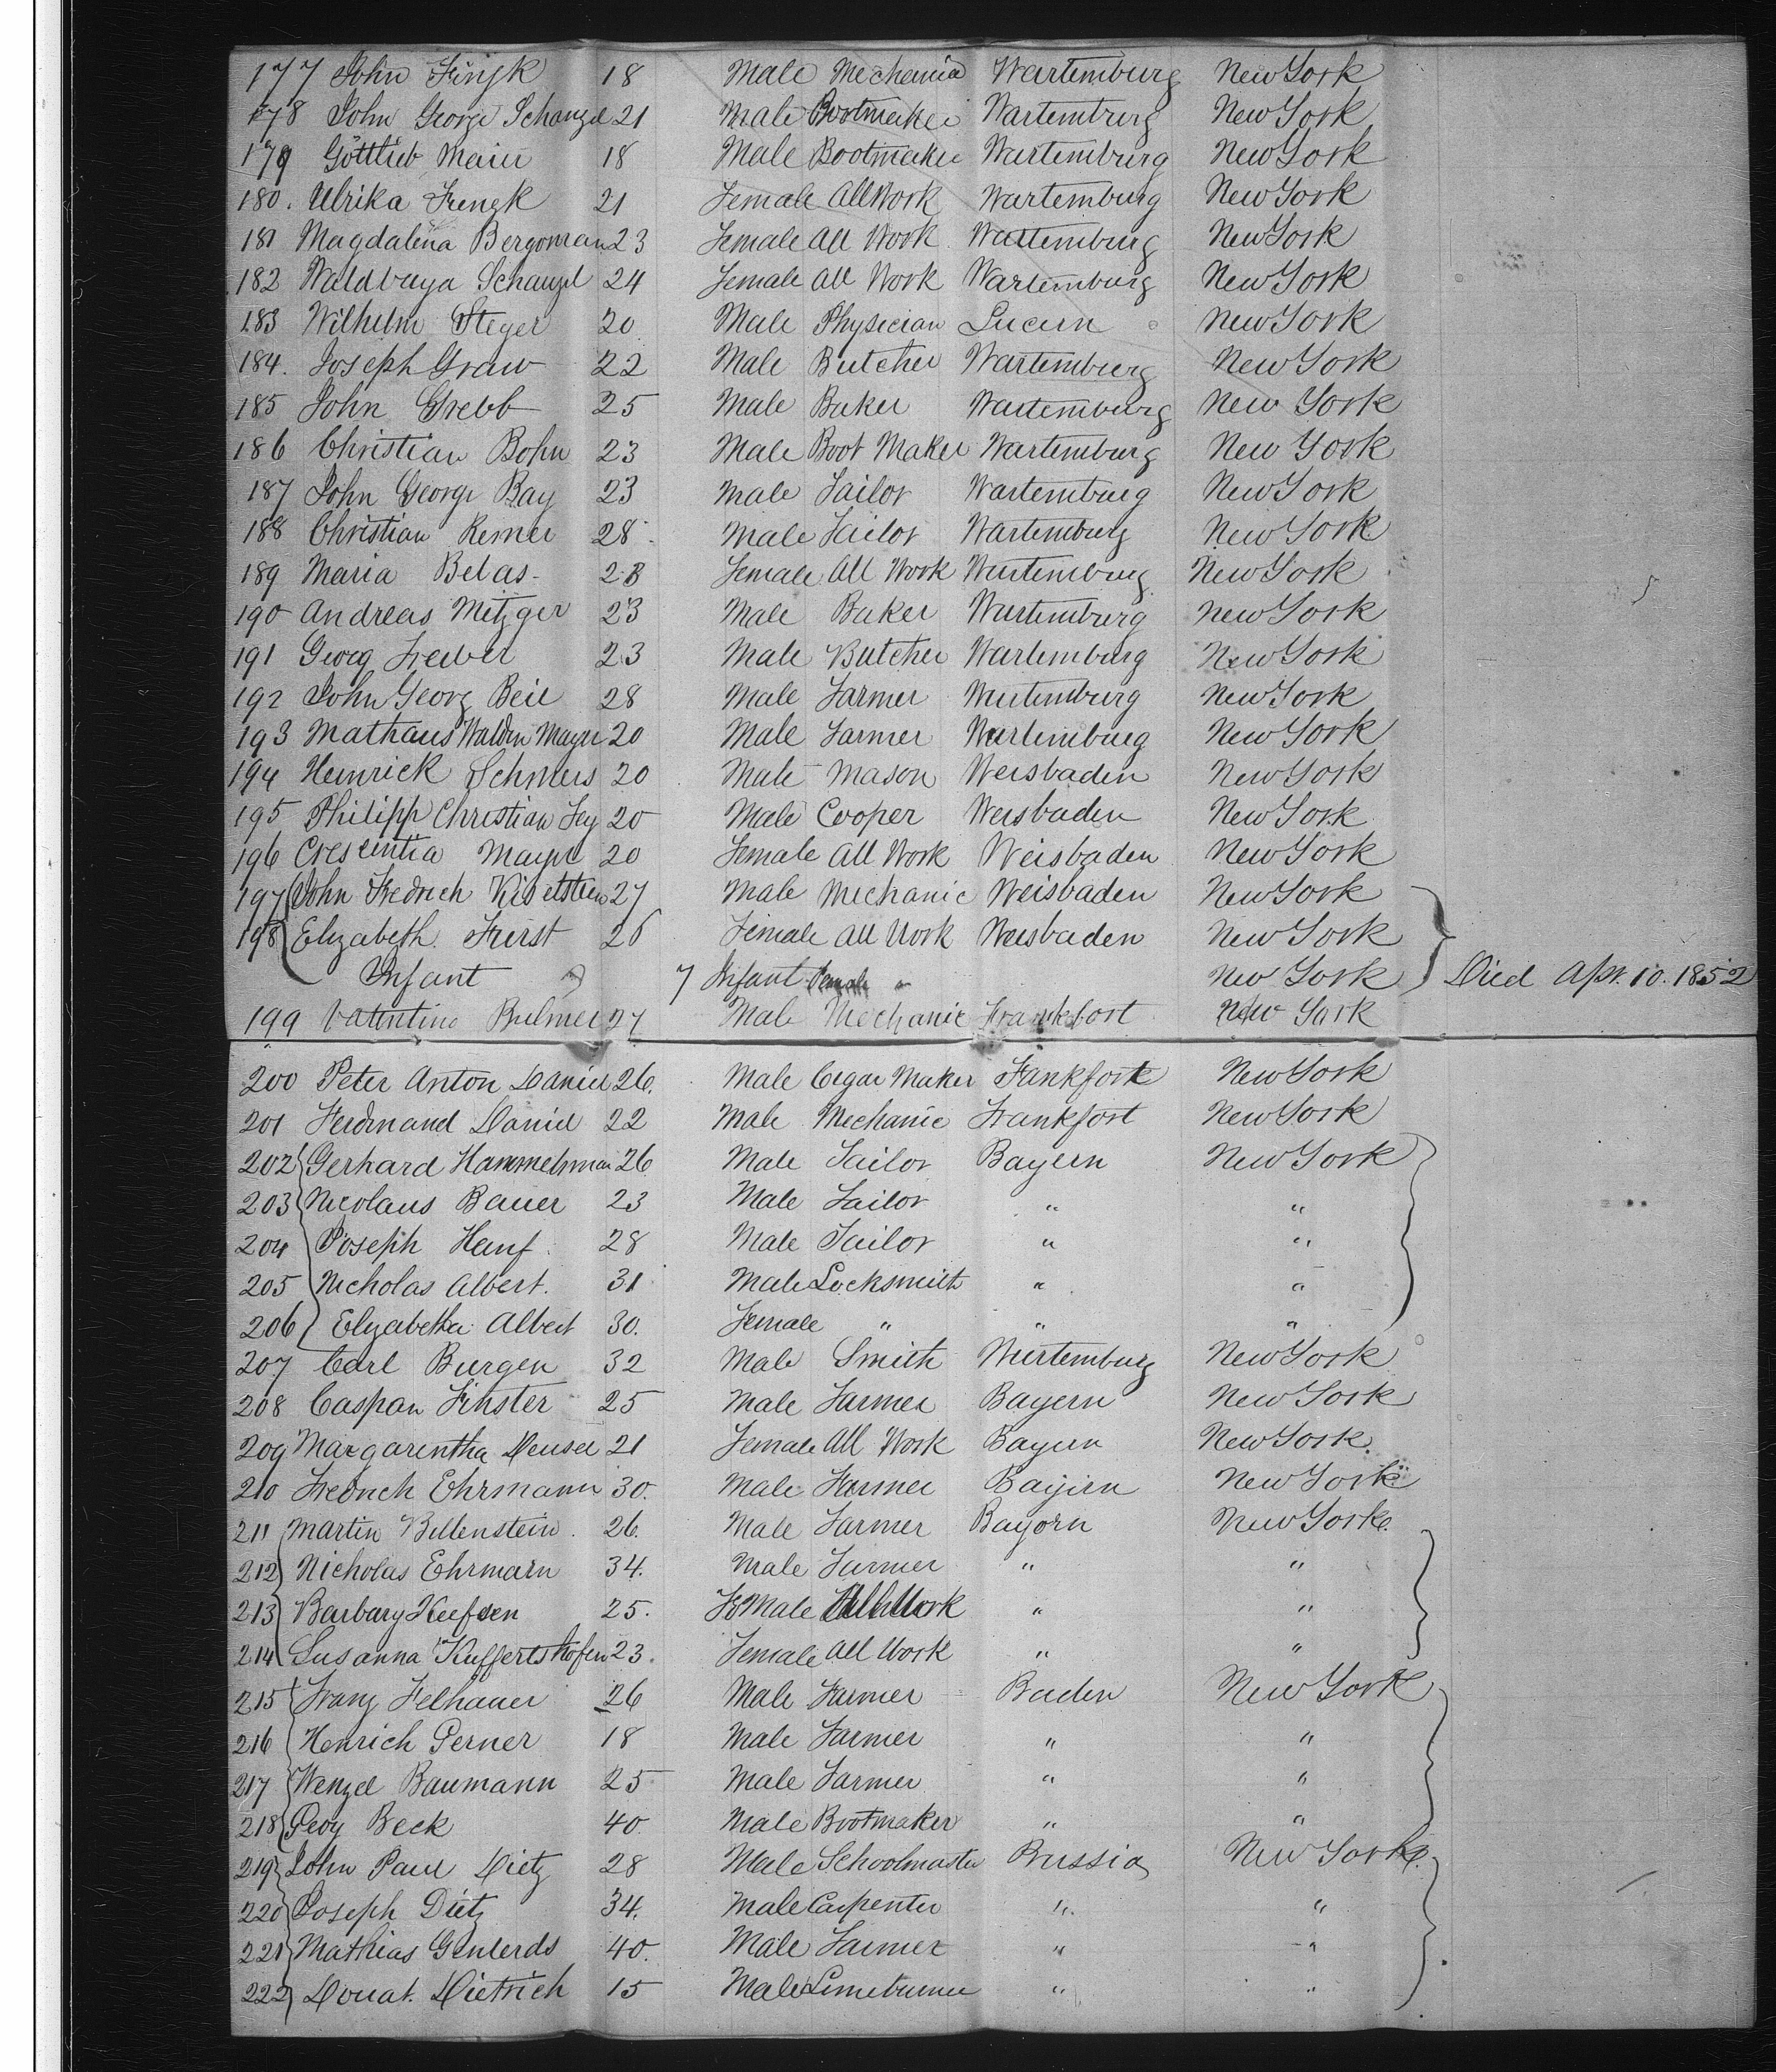 177 John Fringk 18 Male Mechanic Wartemburg New York
178 John George Schangel 21 Male Bootmaker Wartemburg New York
179 Gottlieb Maier 18 Male Bootmaker Wartemburg New York
180. Ulrika Frengk 21 Female All Work Wartemburg New York
181 Magdalena Bergoman 23 Female All Work Wartemburg New York
182 Waldbuga Schangel 24 Female All Work Wartemburg New York
183 Wilhelm Steger 20 Male Physician Lucern New York
184. Joseph Graw 22 Male Butcher Wartemburg New York
185 John Grebb 25 Male Baker Wartemburg New York
186 Christian Bohn 23 Male Boot Maker Wartemburg New York
187 John George Bay 23 Male Tailor Wartemburg New York
188 Christian Remer 28 Male Tailor Wartemburg New York
189 Maria Belas 28 Female All Work Wurtemburg New York
190 Andreas Metzger 23 Male Baker Wurtemburg New York
191 Georg 23 Male Butcher Wartemburg New York
192 John Georg Beil 28 Male Farmer Wurtemburg New York
193 Mathaus Walden Mayer 20 Male Farmer Wurtemburg New York
194 Heinrick Schmers 20 Male Mason Weisbaden New York
195 Philipp Christian Fey 20 Male Cooper Weisbaden New York
196 Crescintia Mayer 20 Female All Work Weisbaden New York
197 John Fredrich Kiselstein 27 Male Mechanic Weisbaden New York
198 Elizabeth Furst 26 Female All Work Weisbaden New York
Infant 7 Infant Female " New York Died Apr. 10. 1852
199 Valentine Bulmer 27 Male Mechanic Frankfort New York
200 Peter Anton Daniel 26. Male Cegar Maker Fankfort New York
201 Ferdinand Daniel 22 Male Mechanic Frankfort New York
202 Gerhard Hammelsman 26 Male Tailor Bayern New York
203 Nicolaus Bauer 23 Male Tailor " "
204 Joseph Hanf 28 Male Tailor " "
205 Nicholas Albert. 31 Male Locksmith " "
206 Elyzabetha Albert 30. Female " " "
207 Carl Burgen 32 Male Smith Wurtemburg New York
208 Caspan Finster 25 Male Farmer Bayern New York
209 Margarintha Deusel 21 Female All Work Bayern New York.
210 Fredrich Ehrmann 30. Male Farmer Bayern New York
211 Martin Billenstein 26. Male Farmer Bayorn New York
212 Nicholas Ehrmarn 34. Male Farmer " "
213 Barbary 25. FeMale All Work " "
214 Susanna Kuffertshofen 23. Female All Work " "
215 Franz Felhauer 26 Male Farmer Baden New York
216 Henrich Perner 18 Male Farmer " "
217 Wenzel Baumann 25 Male Farmer " "
218 Georg Beck 40. Male Bootmaker " "
219 John Paul Dietz 28 Male Schoolmaster Prussia New York
220 Joseph Dietz 34. Male Carpenter " "
221 Mathias Genlerds 40. Male Farmer " "
222 Donat. Dietrich 15 Male Limeburner " "